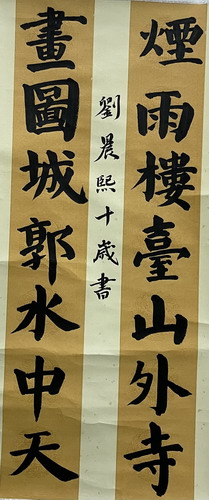 煙雨樓臺山外寺
畫圖城郭水中天
劉晨熙十歲書